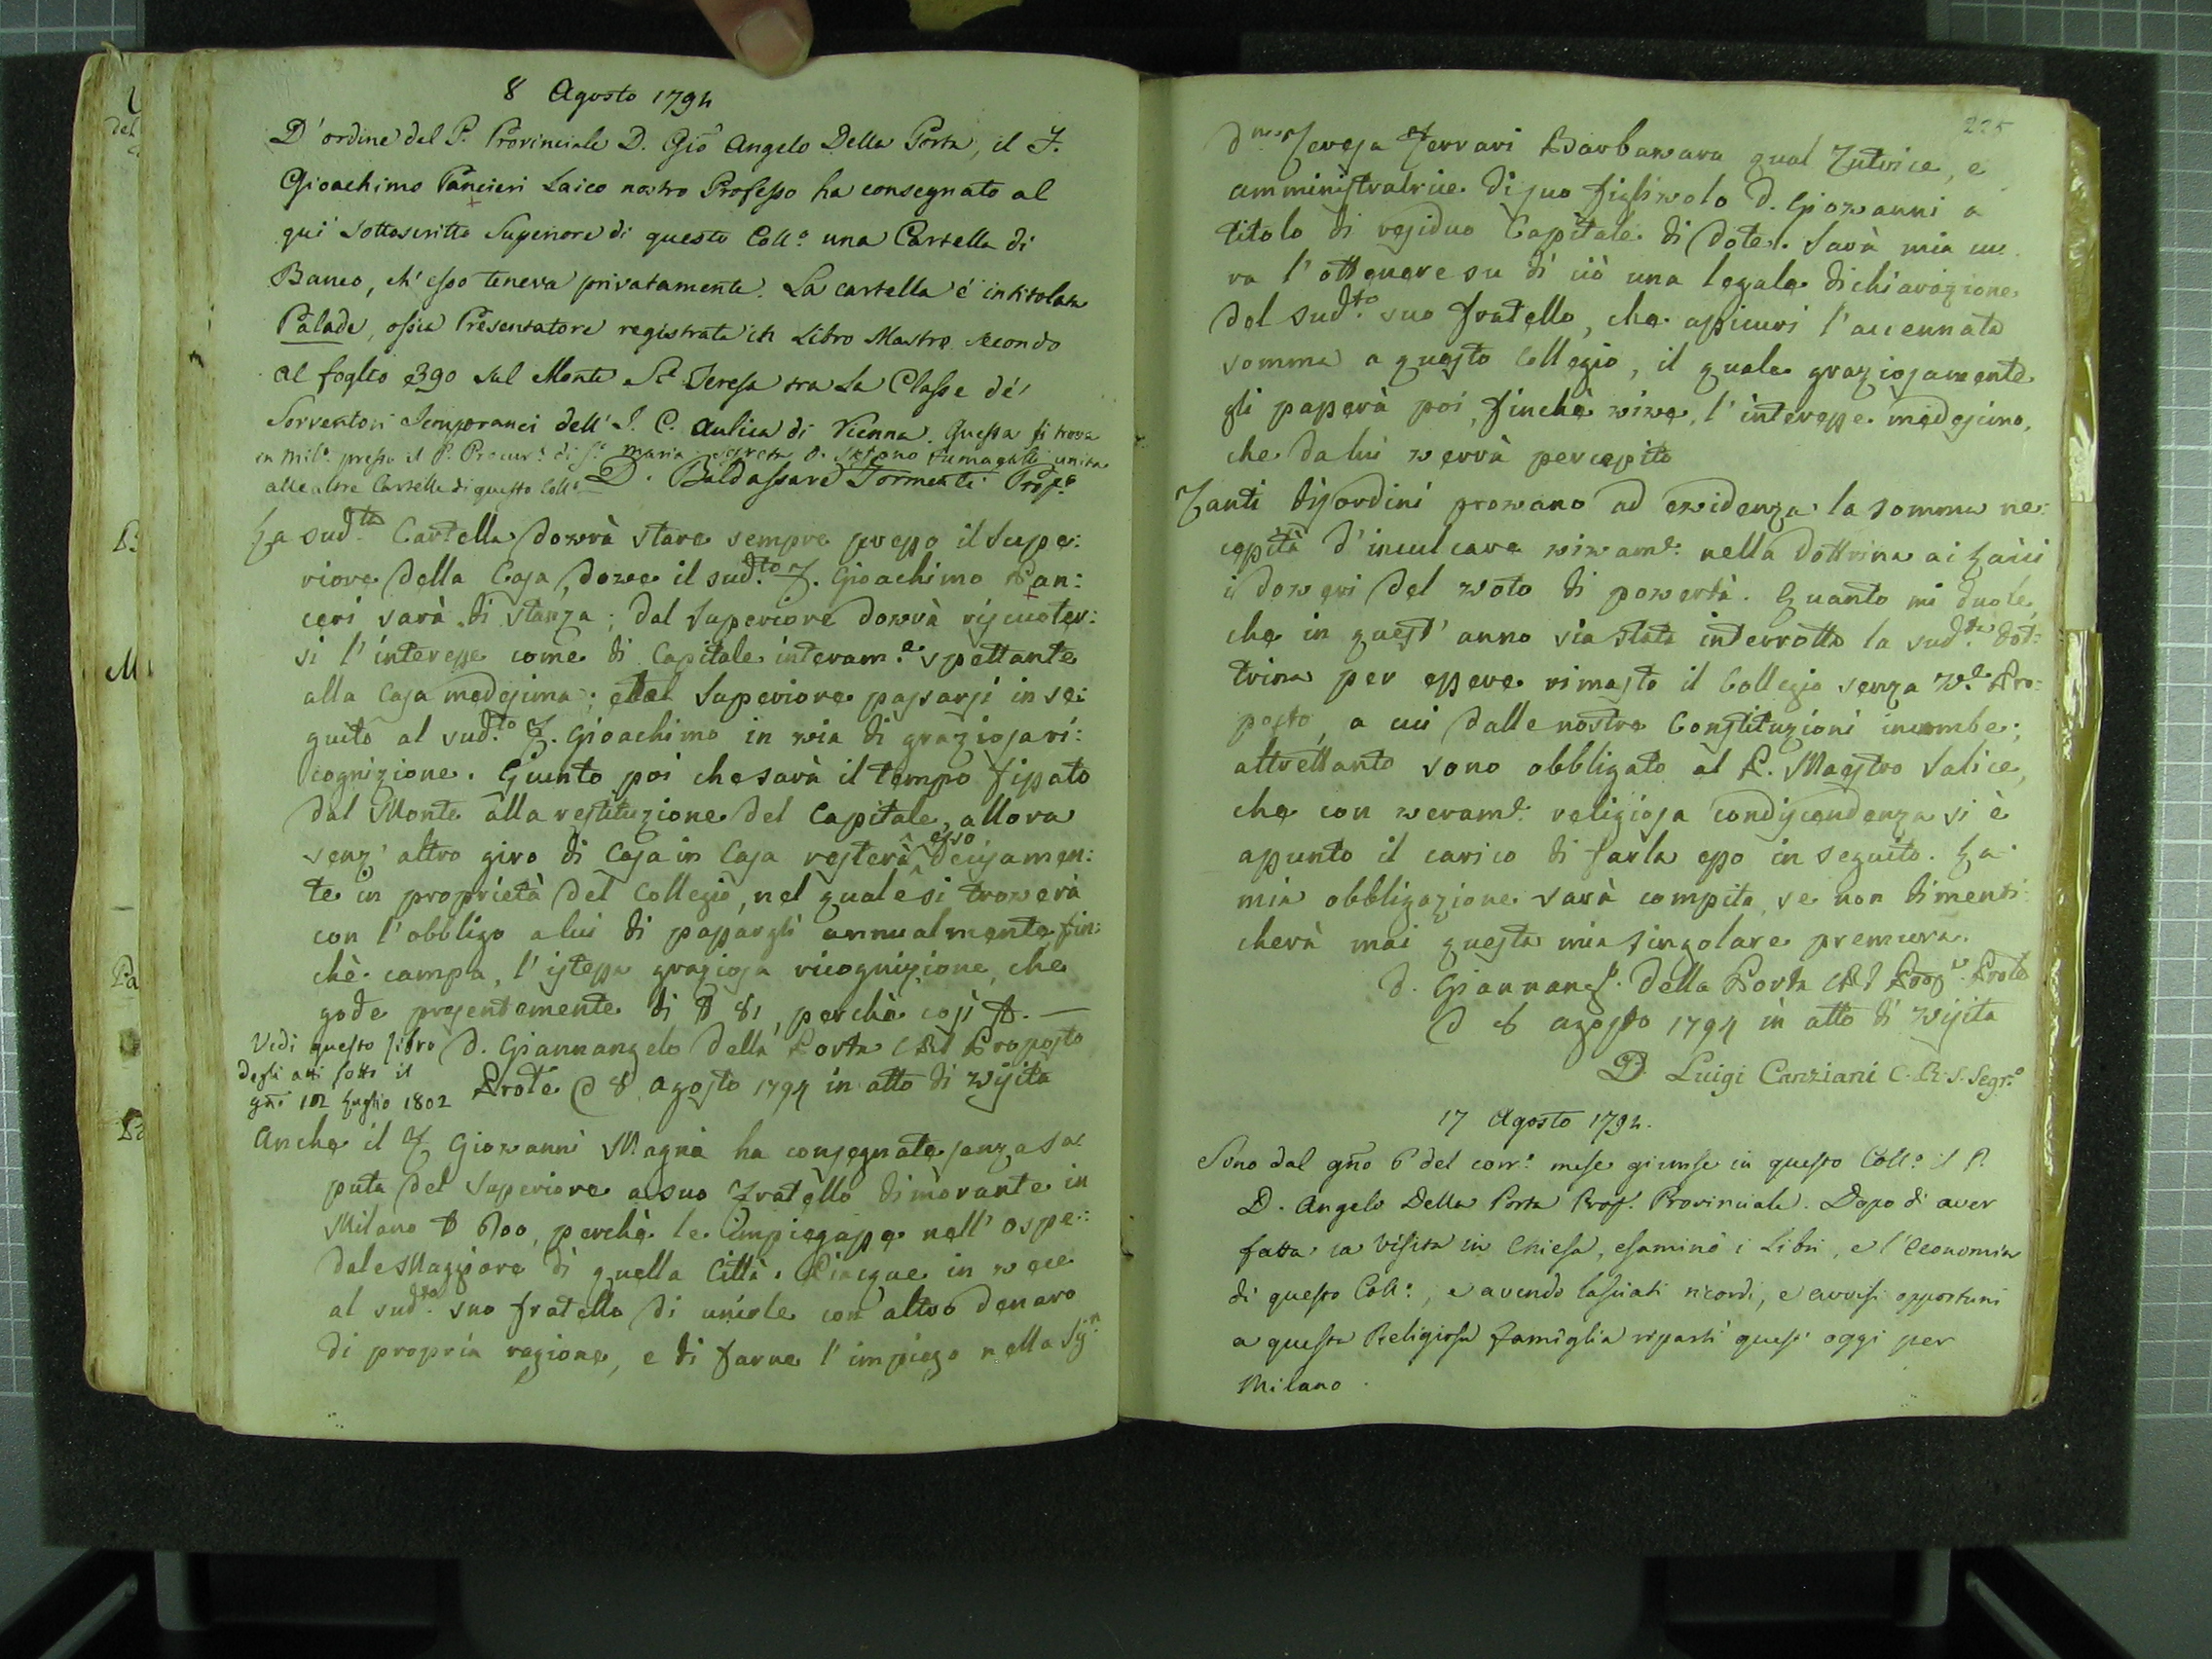 8 Agosto 1794
D'ordine del P. Provinciale D. Gio Angelo Della Porta, il F.
Gioachimo Pancieri Laico nostro Professo ha consegnato al
qui sottoscritto Superiore di questo Coll.o una Cartella di
Banco, ch'esso teneva privatamente. La cartella é intitolata
Palade, ossia Presentatore registrata in Libro Mastro secondo
al foglio 390 sul Monte S.a Teresa tra la Classe dé'
Sorventori Temporanei dell'I. C. Aulica di Vienna. Questa si trova
in Mil.o presso il P. Procur.e di S.a Maria Segreta D. Stefano Fumagalli unita
alle altre Cartelle di questo Coll.o D. Baldassare Formenti Prop.o
La sud.ta Cartella dovrà stare sempre presso il Supe:
riore della Casa, dove il sud.to F. Gioachimo Pan:
ceri sarà di stanza; dal Superiore dovrà riscuoter:
si l'interesse come di Capitale interam.e spettante
alla Casa medesima; e dal Superiore passarsi in se:
guito al sud.to F. Gioachimo in via di graziosa ri:
cognizione. Giunto poi che sarà il tempo fissato
dal Monte alla restituzione del Capitale, allora
senz'altro giro di Casa in Casa resterà esso decisamen:
te in proprietà del Collegio, nel quale si troverà
con l'obbligo a lui di passargli annualmente, fin:
chè campa, l'istessa graziosa ricognizione, che
gode presentemente di 81, perchè così
Vedi questo libro
degli atti sotto il
gno 12 Luglio 1802
D. Giannangelo della Porta CRS Proposto
Prole @ 8 agosto 1794 in atto di visita
Anche il F. Giovanni Magna ha consegnate senza sa
puta del Superiore a suo Fratello dimorante in
Milano 600, perchè le impiegasse nell'ospe:
dale Maggiore di quella Città. Piacque in vece
al sud.to suo fratello di unirle con altro denaro
di propria ragione, e di farne l'impiego nella Sig.a
225
D.na Teresa Ferrari Barbavara qual Tutrice, e
amministratrice di suo figliuolo D. Giovanni a
titolo di residuo Capitale di dote. Sarà mia cu
ra l'ottenere su di ciò una legale dichiarazione
del sud.to suo fratello, che assicuri l'accennata
somma a questo Collegio, il quale graziosamente
gli passerà poi, finchè vive, l'interesse medesimo,
che da lui verrà percepito
Tanti disordini provano ad evidenza la somma ne:
cessità d'inculcare vivam.e nella dottrina ai Laici
i doveri del voto di povertà. Quanto mi duole,
che in quest'anno sia stata interrotta la sud.ta dot:
trina per essere rimasto il Collegio senza V.e Pro:
posto, a cui dalle nostre Constituzioni incombe;
altrettanto sono obbligato al P. Maestro Salice,
che con veram.e religiosa condiscendenza si è
assunto il carico di farla esso in seguito. La
mia obbligazione sarà compita, se non dimenti:
cherà mai questa mia singolare premura.
D. Giannang.o della Porta CRS Prop.o Prole
@ 8 agosto 1794 in atto di visita
D. Luigi Canziani C.R.S. Segr.o
17 Agosto 1794.
Sino dal gno 6 del corr.e mese giunse in questo Coll.o il P.
D. Angelo Della Porta Prep. Provinciale. Dopo di aver
fatta la visita in Chiesa, esaminò i Libri, e l'economia
di questo Coll.o, e avendo lasciati ricordi, e avvisi opportuni
a questa Religiosa famiglia ripartì quest'oggi per
Milano.